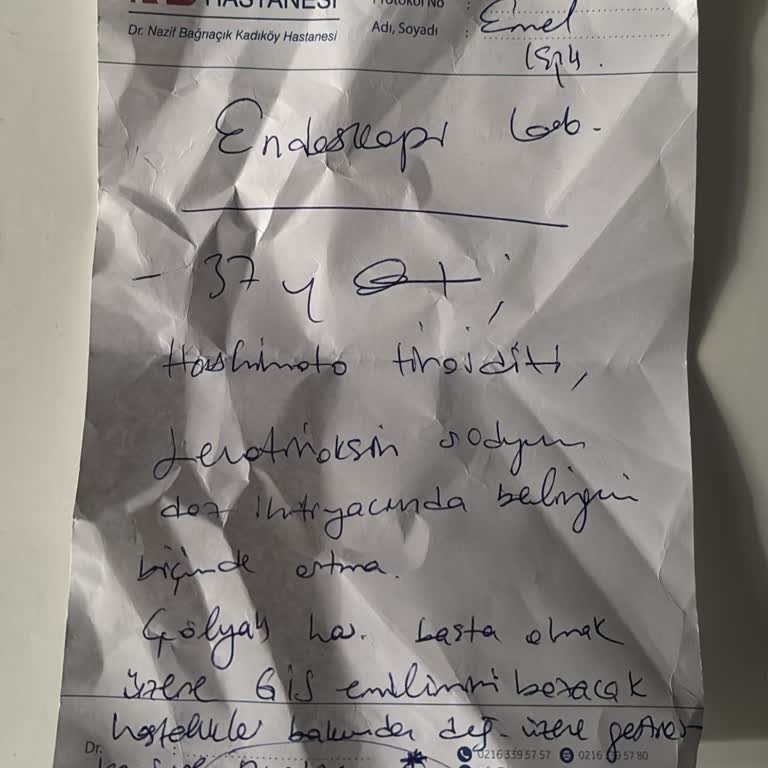 HASTANESİ
Dr. Nazif Bağrıaçık Kadıköy Hastanesi
Protokol No :
Adı, Soyadı : Emel
Işık.
Endoskopi Lab.
- 37 y
Hashimoto tiroiditi,
Levotiroksin sodyum
doz ihtiyacında belirgin
biçimde artma.
Çölyak has. başta olmak
üzere GİS emilimini bozacak
hastalıklar bakımından değ. üzere
Dr.
0216 339 57 57 0216 339 57 80